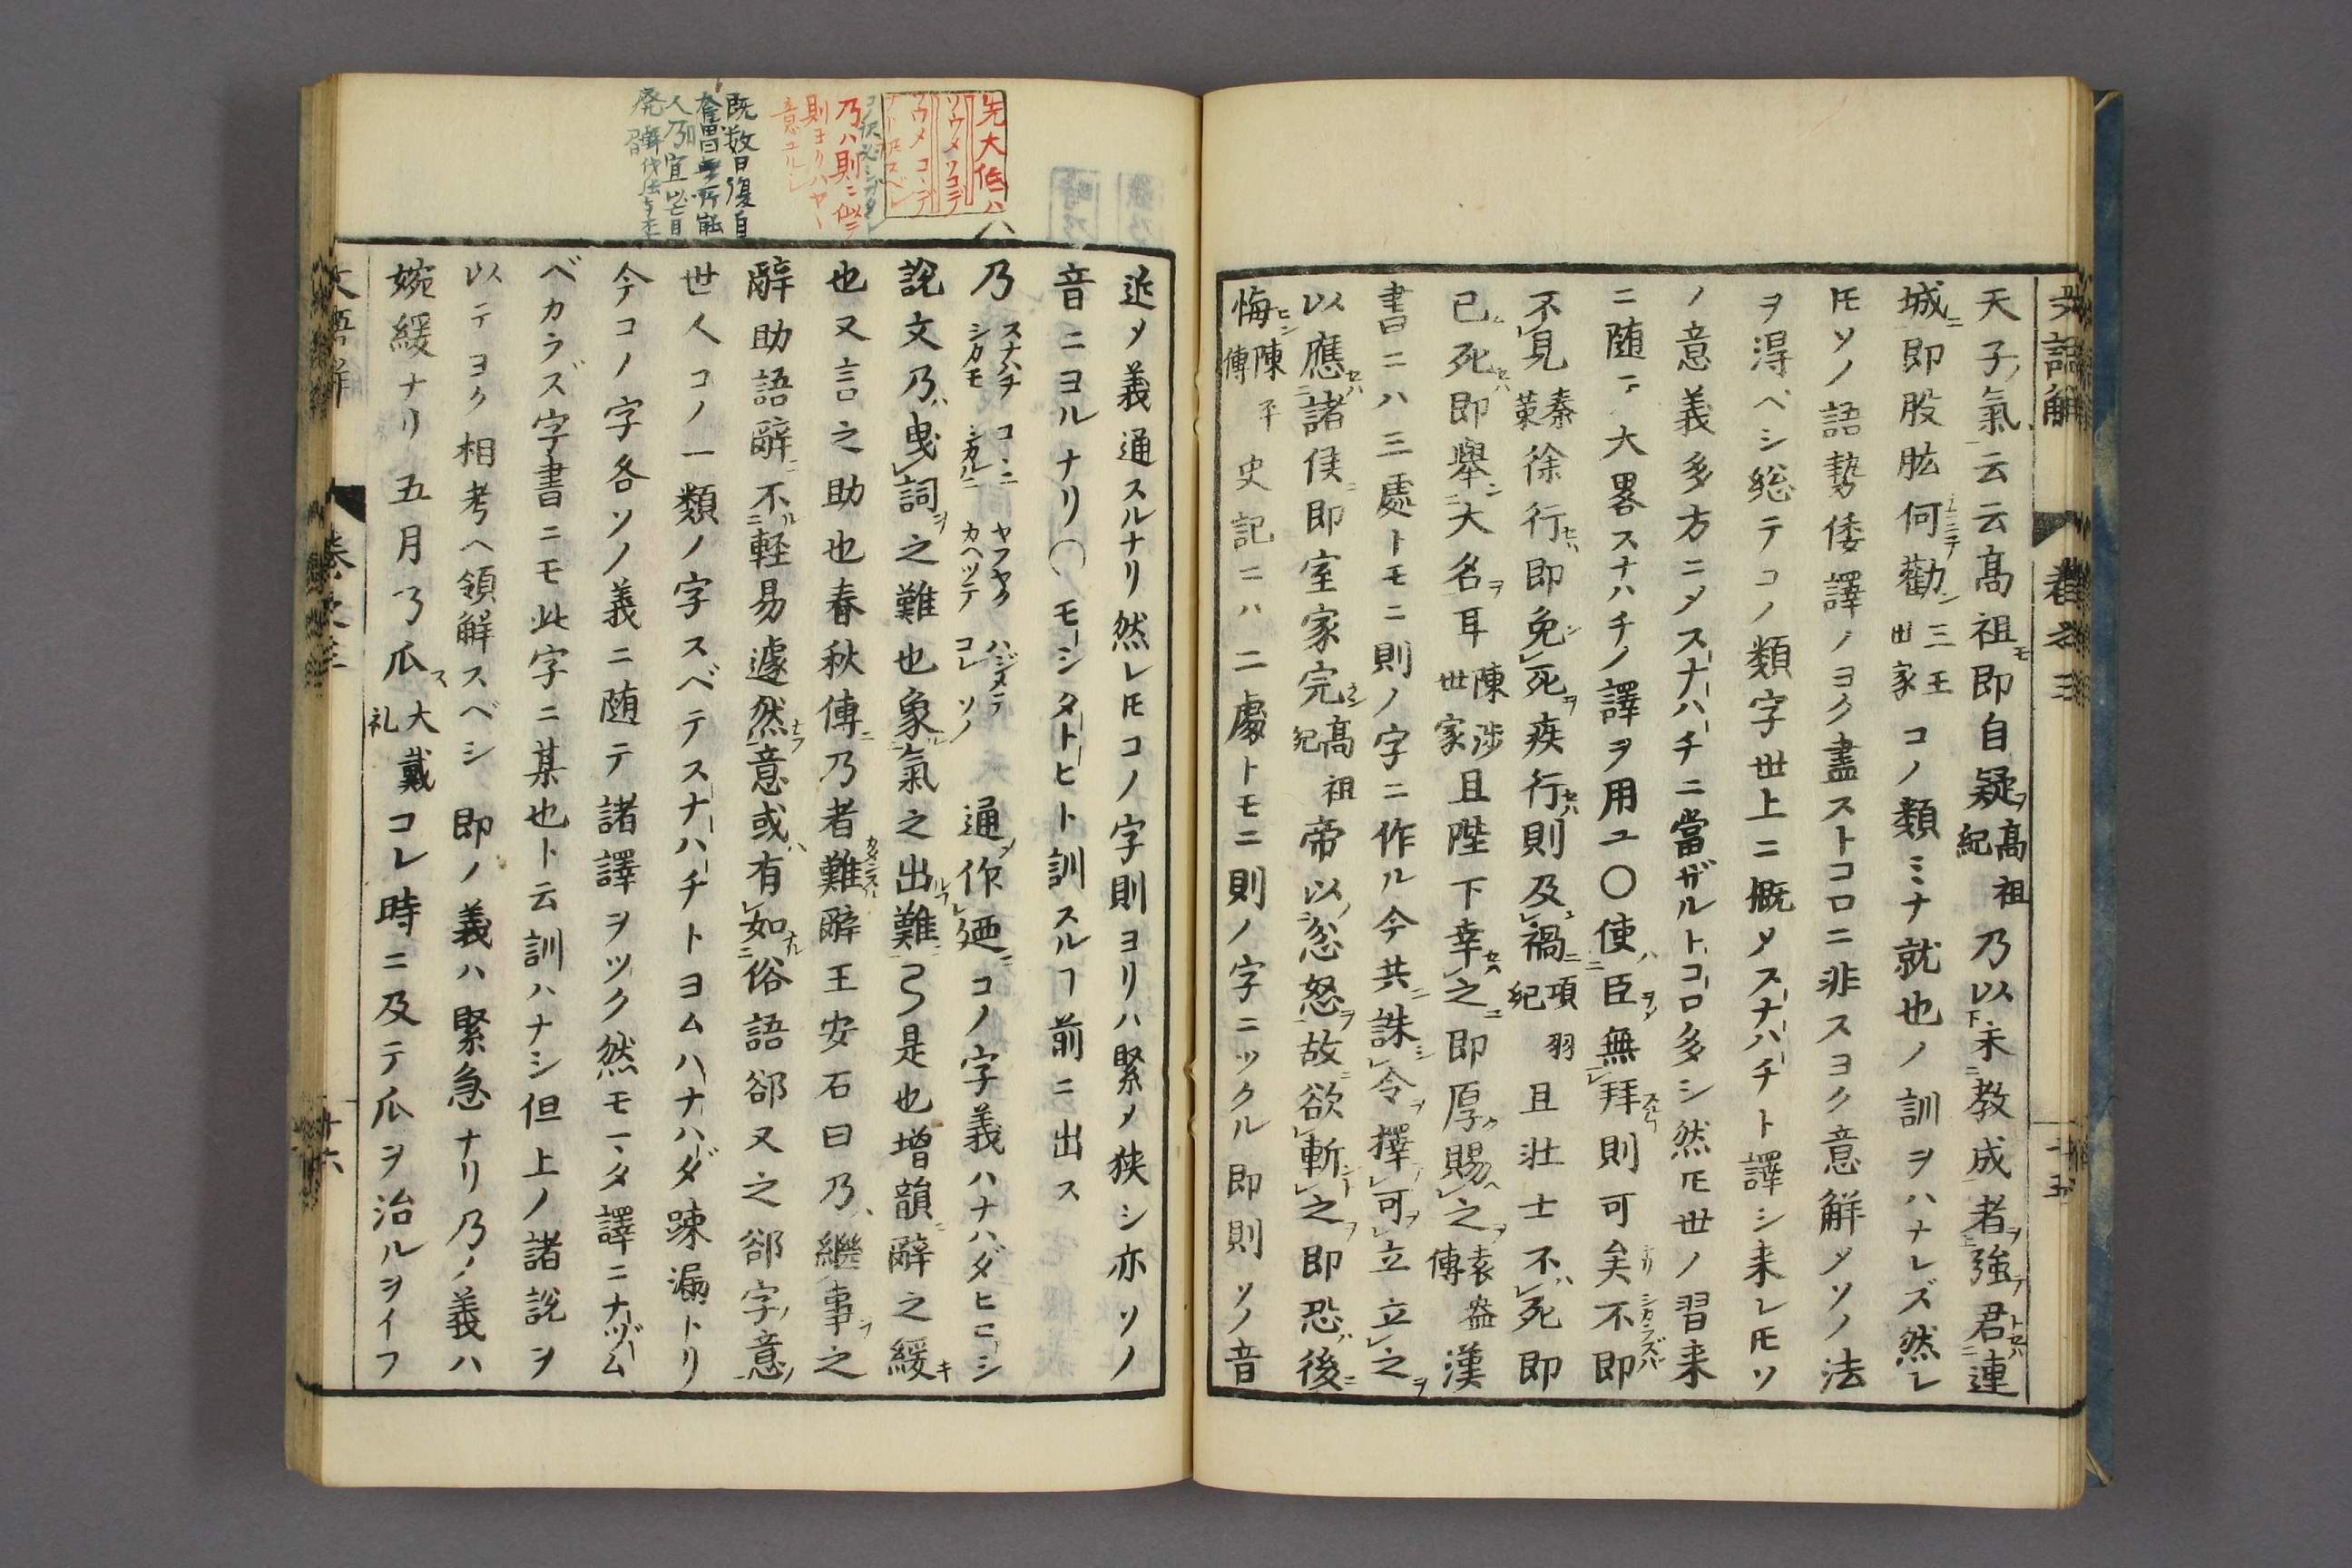 文語解
卷之三
二十五
天子氣云云高祖即自疑高祖紀乃以未教成者強君連
城即股肱何勸三王世家コノ類ミナ就也ノ訓ヲハナレズ然レ
𪜈ソノ語勢倭譯ノヨク盡ストコロニ非スヨク意解〆ソノ法
ヲ得ベシ総テコノ類字世上ニ概〆スナハチト譯シ来レ𪜈ソ
ノ意義多方ニ〆スナハチニ當ザルトコロ多シ然𪜈世ノ習来
ニ随テ大畧スナハチノ譯ヲ用ユ〇使臣無拜則可矣不即
不見秦策徐行即免死疾行則及禍項羽紀且壮士不死即
已死即舉大名耳陳涉世家且陛下幸之即厚賜之袁盎傳漢
書ニハ三處トモニ則ノ字ニ作ル今共誅令擇可立立之
以應諸侯即室家完高祖紀帝以忿怒故欲斬之即恐後
悔陳平傳史記ニハ二處トモニ則ノ字ニツクル即則ソノ音
近〆義通スルナリ然レ𪜈コノ字則ヨリハ緊〆狭シ亦ソノ
音ニヨルナリ〇モシタトヒト訓スルヿ前ニ出ス
乃 スナハチ シカモ コヽニ シカルニ ヤフヤク カヘツテ ハジメテ コレ ソノ 通作廼コノ字義ハナハダヒロシ
說文乃曳詞之難也象氣之出難弓是也増韻辭之緩
也又言之助也春秋傳乃者難辭王安石曰乃繼事之
辭助語辭不軽易遽然意或有如俗語郤又之郤字意
世人コノ一類ノ字スベテスナハチトヨムハナハダ踈漏トリ
今コノ字各ソノ義ニ随テ諸譯ヲツク然モマタ譯ニナヅム
ベカラズ字書ニモ此字ニ某也ト云訓ハナシ但上ノ諸說ヲ
以テヨク相考ヘ領解スベシ即ノ義ハ緊急ナリ乃ノ義ハ
婉緩ナリ五月乃瓜大戴礼コレ時ニ及テ瓜ヲ治ルヲイフ
文語解
卷之三
廿六
先大低ハ
乃ハ則ニ似テ
則ヨリハヤヽ
意ユルシ
既数日復自